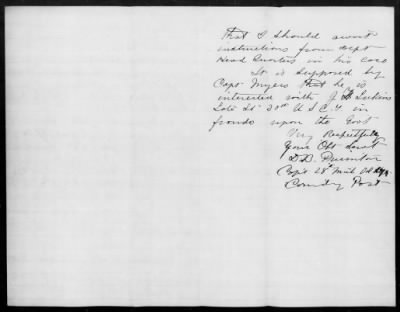 That I should await
instructions from dept
Head Quarters in his case
It is supposed by
Capt Myers that he is
interested with J
Late Lt 30th U.S.C.
frauds upon the Govt
Very Respectfully
Your Obt Servt
D.D.
Capt 28" Mich
Comdg Post